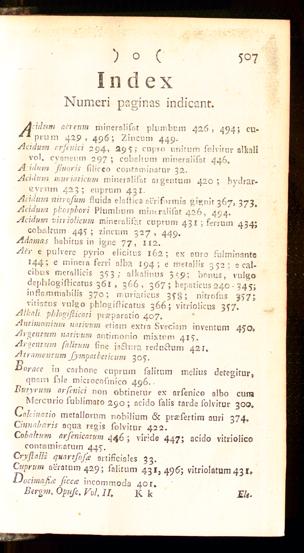 ) o ( 507
Index
Numeri paginas indicant.
Acidum aereum mineralisat plumbum 426, 494; cu-
prum 429, 496; Zincum 449.
Acidum arsenici 294, 295; cupro unitum solvitur alkali
vol. cyaneum 297; cobaltum mineralisat 446.
Acidum fluoris siliceo contaminatur 32.
Acidum muriaticum mineralisat argentum 420; hydrar-
gyrum 423; cuprum 431.
Acidum nitrosum fluida elastica aëriformia gignit 367, 373.
Acidum phosphori Plumbum mineralisat 426, 494.
Acidum vitriolicum mineralisat cuprum 431; ferrum 434;
cobaltum 445; zincum 327, 449.
Adamas habitus in igne 77, 112.
Aër e pulvere pyrio elicitus 162; ex auro fulminante
144; e minera ferri alba 194; e metallis 352; e cal-
cibus metallicis 353; alkalinus 359; bonus, vulgo
dephlogisticatus 361, 366, 367; hepaticus 240-345;
inflammabilis 370; muriaticus 358; nitrosus 357;
vitiatus vulgo phlogisticatus 366; vitriolicus 357.
Alkali phlogisticati præparatio 407.
Antimonium nativum etiam extra Sveciam inventum 450.
Argentum nativum antimonio mixtum 415.
Argentum salitum sine jactura reductum 421.
Atramentum sympatheticum 305.
Borace in carbone cuprum salitum melius detegitur,
quam sale microcosmico 496.
Butyrum arsenici non obtinetur ex arsenico albo cum
Mercurio sublimato 290; acido salis tarde solvitur 300.
Calcinatio metallorum nobilium & præsertim auri 374.
Cinnabaris aqua regis solvitur 422.
Cobaltum arsenicatum 446; viride 447; acido vitriolico
contaminatum 445.
Crystalli quartsosæ artificiales 33.
Cuprum aëratum 429; salitum 431, 496; vitriolatum 431.
Docimasiæ siccæ incommoda 401.
Bergm. Opusc. Vol. II. K k Ele-